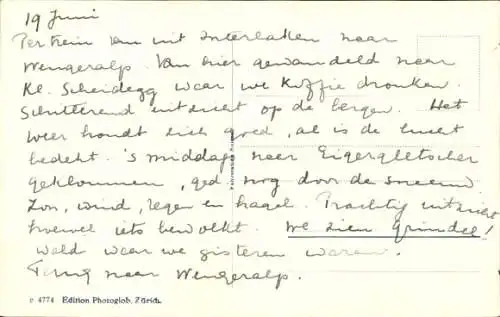 19 Juni
Per trein van uit Interlaken naar
Wengeralp. Van hier gewandeld naar
Kl. Scheidegg waar we Koffie dronken.
Schitterend uitzicht op de bergen. Het
weer houdt zich goed, al is de lucht
bedekt. 's middags naar Eigergletscher
geklommen, ged. nog door de sneeuw.
Zon, wind, regen en hagel. Prachtig uitzicht
hoewel iets bewolkt. We zien Grindel!
wald waar we gisteren waren.
Terug naar Wengeralp.
P 4774 Edition Photoglob, Zürich.